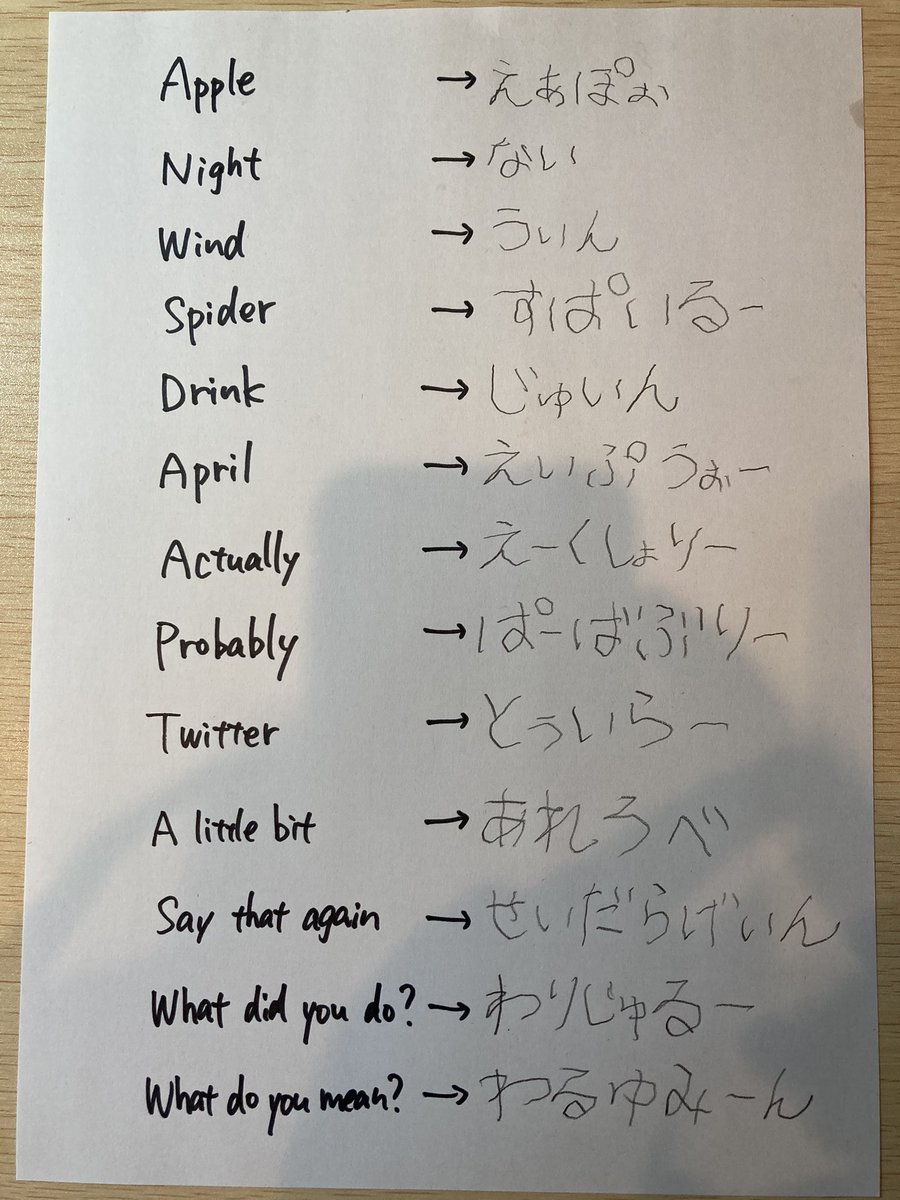 Apple → えぁぽぉ
Night → ないぃ
Wind → うぃん
Spider → すぱいるー
Drink → じゅいん
April → えいぷぅぉー
Actually → えーくしょりー
Probably → ぱーばぶりー
Twitter → とぅいらー
A little bit → あれろべ
Say that again → せいだらげいん
What did you do? → わりじゅるー
What do you mean? → わるゆみーん